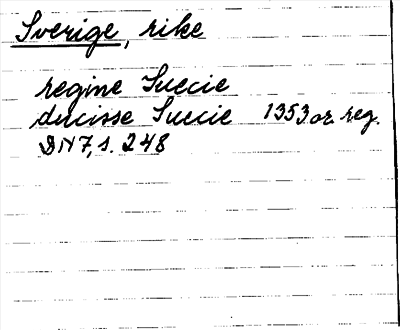 Sverige, rike
regine Suecie
ducisse Suecie 1353 or reg.
DN7, s. 248